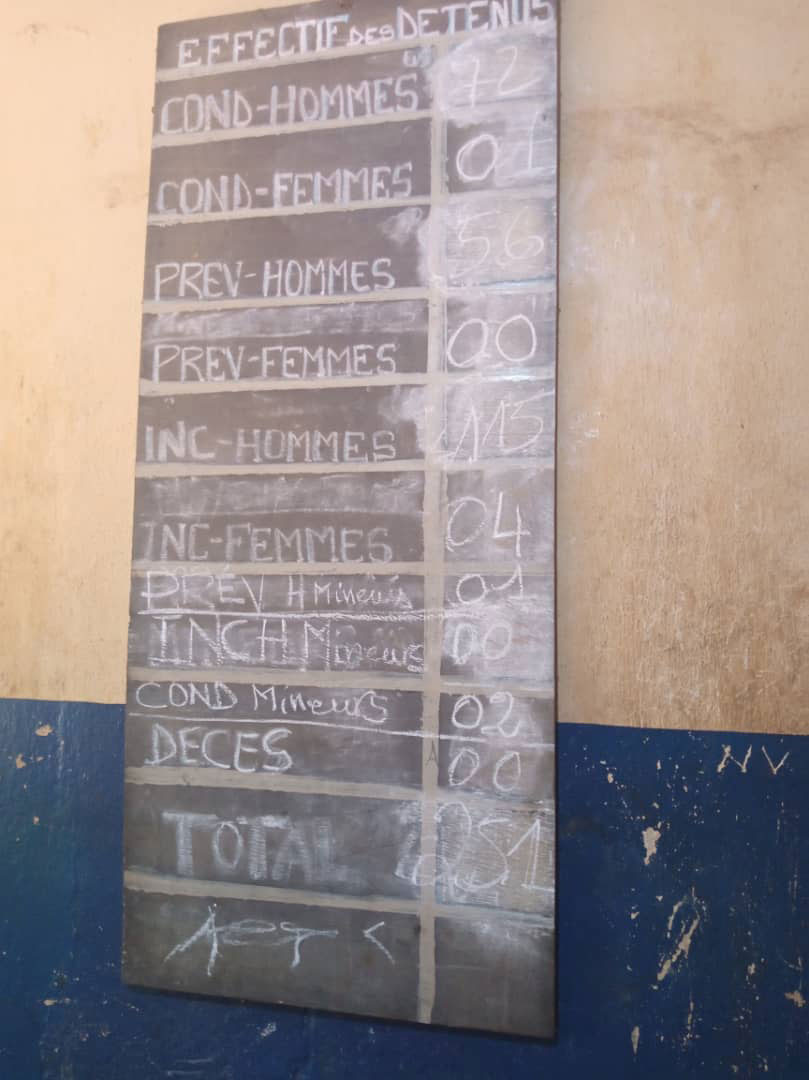 EFFECTIF DES DETENUS
COND-HOMMES 72
COND-FEMMES 01
PREV-HOMMES 56
PREV-FEMMES 00
INC-HOMMES 115
INC-FEMMES 04
PRÉV H Mineurs 01
INCH Mineurs 00
COND Mineurs 02
DECES 00
TOTAL 251
NV